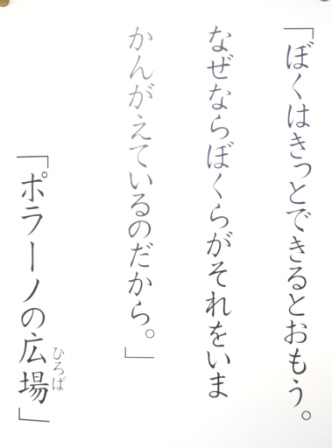 「ぼくはきっとできるとおもう。
なぜならぼくらがそれをいま
かんがえているのだから。」
「ポラーノの広場」
ひろば